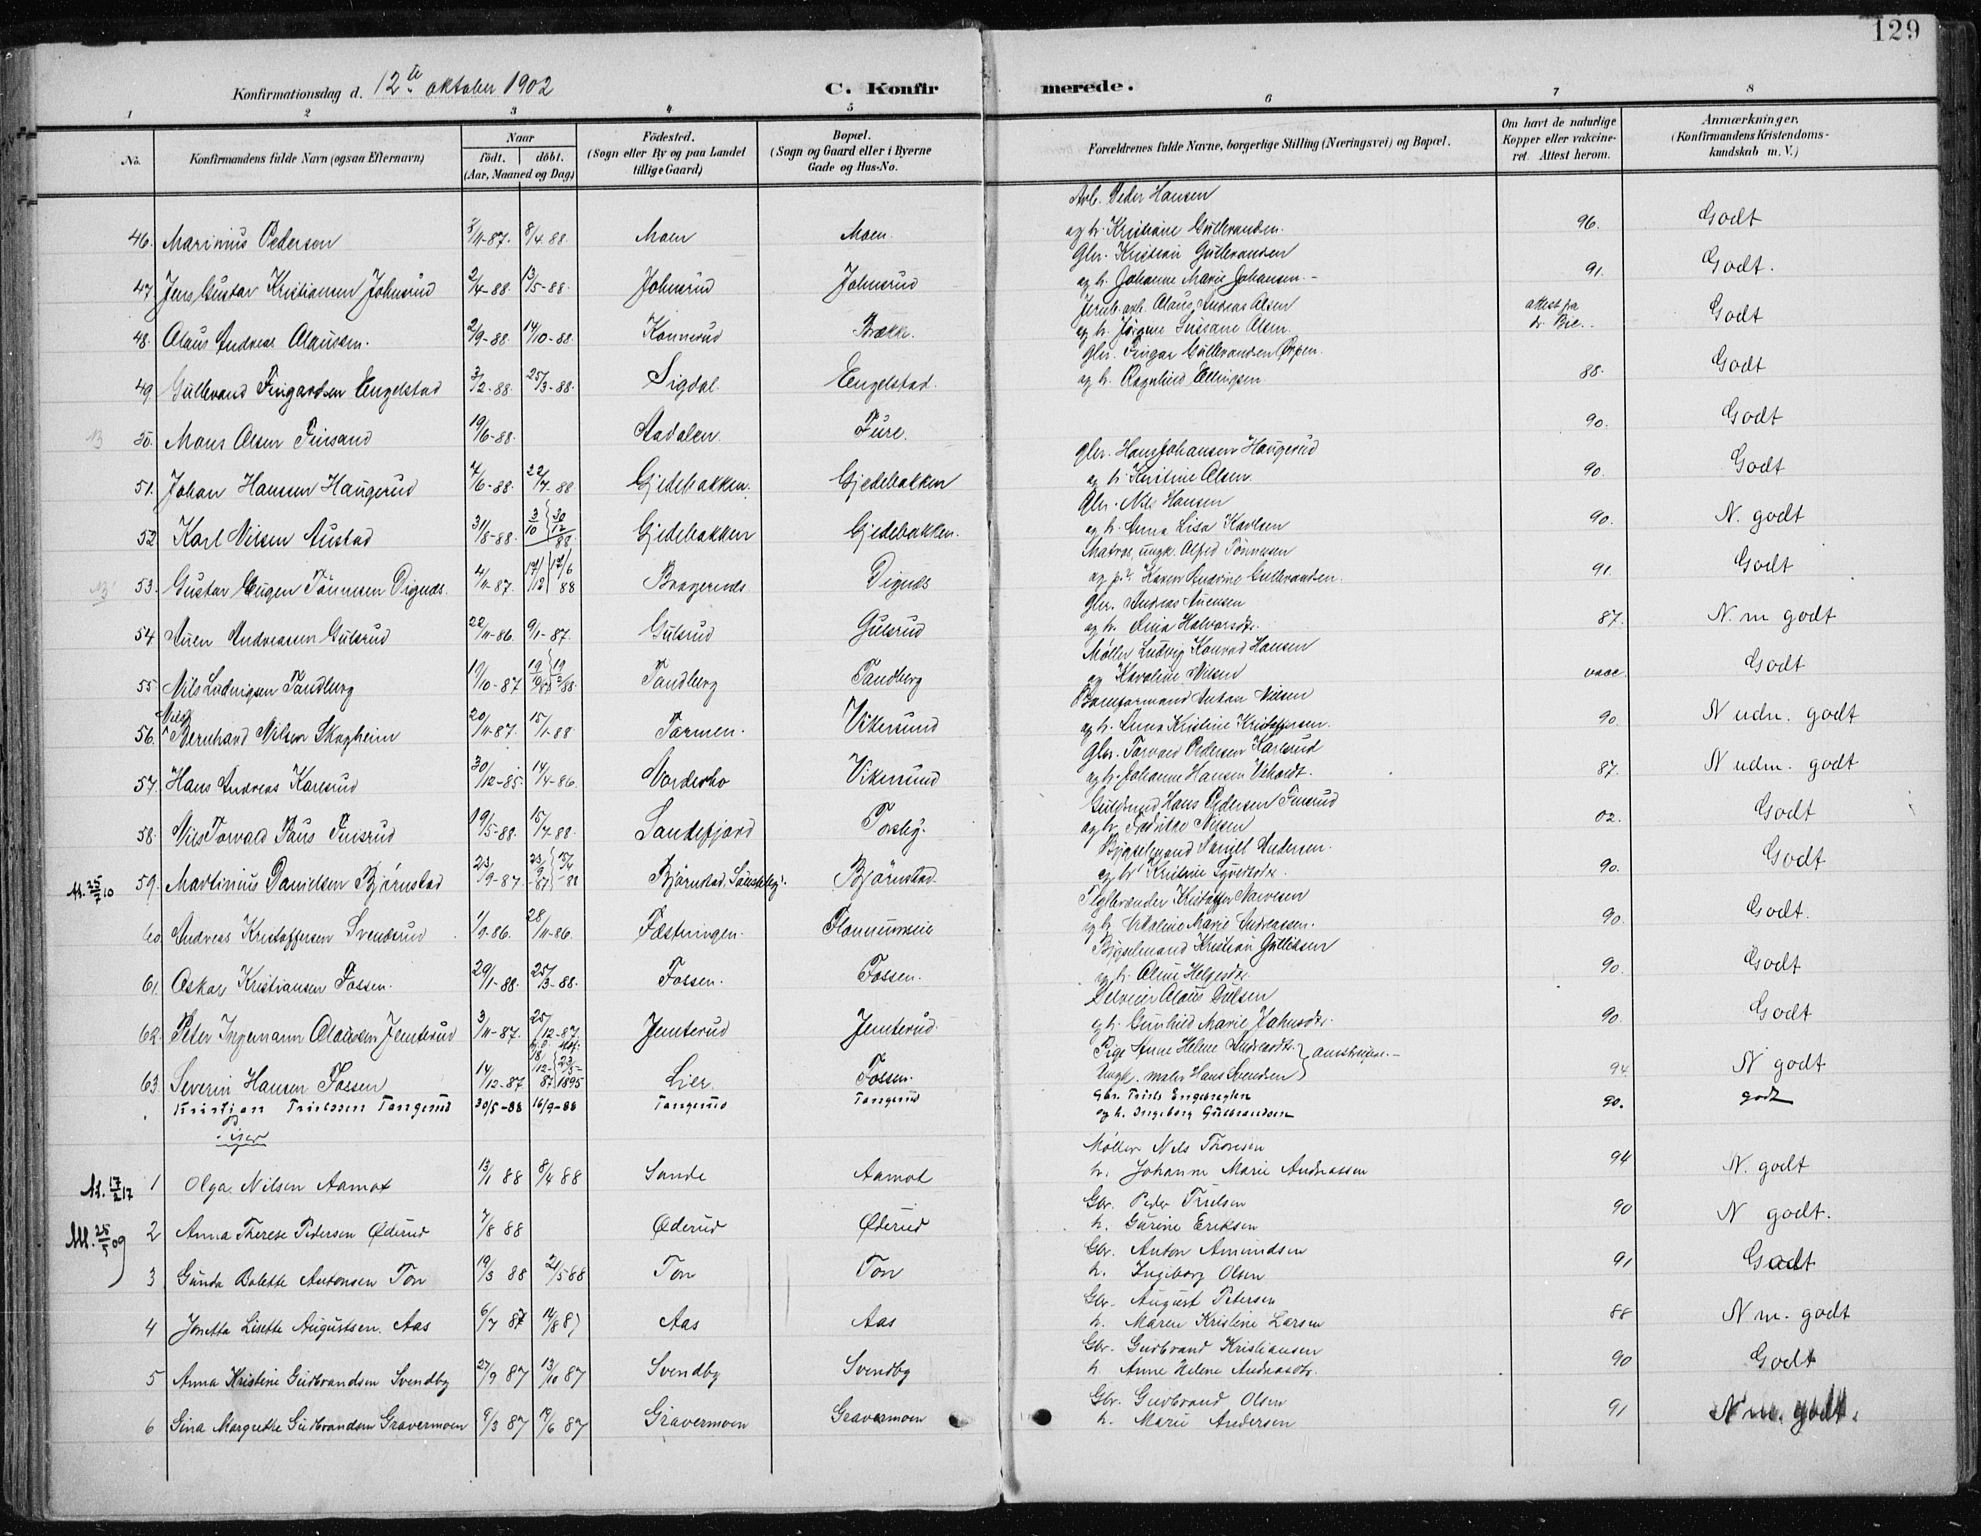 129
Konfirmationsdag d. 12te oktober 1902 C. Konfirmerede.
1 2 3 4 5 6 7 8
No. Konfirmandens fulde Navn (ogsaa Efternavn) Naar født. døbt. (Aar, Maaned og Dag) Fødested. (Sogn eller By og paa Landet tillige Gaard) Bopæl. (Sogn og Gaard eller i Byerne Gade og Hus-No. Forældrenes fulde Navne, borgerlige Stilling (Næringsvei) og Bopæl. Om havt de naturlige Kopper eller vakcineret. Attest herom. Anmærkninger. (Konfirmandens Kristendomskundskab m. V.)
Arb. Peder Hansen
46. Marinius Pedersen 3/11-87. 8/4.88 Moen Moen. og h. Kristiane Gulbrandsen. 96. Godt
Gbr. Kristian Gulbrandsen
47 Jens Gustav Kristiansen Johnsrud 2/4-88. 13/5-88. Johnsrud Johnsrud og h. Johanne Marie Johansen.- 91. Godt.
Jernb.arb. Olaus Andreas Olsen
48. Olaus Andreas Olaussen. 2/9-88 14/10-88. Konnerud Brække. og h. Jørgine Olsen. attest fra dr. Bie. Godt
Gbr. Fingar Gulbrandsen
49 Gulbrand Fingardsen Engelstad 3/2-88 25/3-88. Sigdal Engelstad. og h. Ragnhild Ellingsen 88. Godt
50. Mons Olsen Finsand 19/6-88. Aadalen Fure. 90. Godt
Gbr. Hans Johansen Haugerud
51. Johan Hansen Haugerud 7/6-88. 22/7-88 Gjedebakken. Gjedebakken og h. Kristine Olsen. 90. Godt
Gbr. Nils Hansen
52 Karl Nilsen Austad 31/8-88. 3/10 30/12 88 Gjedebakken Gjedebakken. og h. Anna Lisa Karlsen 90. N. godt
Matros ungk. Alfred Tønnesen
53. Gustav Eugen Tønnesen Dignæs. 4/11-87. 17/12 12/6 88 Bragernæs Dignæs og p. Karen Andrine Gulbrandsen. 91. Godt
Gbr. Andreas Auensen
54 Auen Andreassen Gulsrud 22/11-86. 9/1-87. Gulsrud Gulsrud og h. Lina Halvorsdtr. 87. N. m godt
Møller Ludvig Konrad Hansen
55 Nils Ludvigsen Tandberg 19/10-87 Tandberg Tandberg og Karoline Nilsen vacc. Godt
Bomformand Anton Nilsen
56. Nils Bernhard Nilsen Skogheim 20/11-87. 15/1-88 Tarmen. Vikersund og h. Anna Kristine Kristoffersen. 90. N udm. godt
Gbr. Torvald Pedersen Karlsrud
57. Hans Andreas Karlsrud 30/12-85. 14/4-86. Norderho Vikersund og h. Johanne Hansen 87. N udm. godt
Guldsmed Hans Pedersen Finsrud
58. Nils Torvald Paus Finsrud 19/5-88. 15/7.88. Sandefjord Torsby. og h. Fredrikke Nilsen 02. Godt
Bygselmand Daniel Andersen.
M. 25/7 10 59. Martinius Danielsen Bjørnstad 23/9-87. Bjørnstad. Bjørnstad. og h. Kristine 90. Godt
Teglbrænder Kristoffer
60 Andreas Kristoffersen Svendsrud 1/9-86. 28/11-86. Fæstningen. og h. Nikoline Marie Andreassen. 90. Godt.
Bygselmand Kristian Gulliksen
61. Oskar Kristiansen Fossen. 29/1-88. 25/3-88. Fossen. Fossen. og h. Oline Helgesdtr. 90. Godt
Selveier Olaus Gulsen
62. Peter Ingemann Olaussen Jemterud 3/11-87. 25/12-87. Jemterud Jemterud. og h. Gunhild Marie 90. Godt
Pige Anne Helene Andreasdtr.
63. Severin Hansen Fossen 14/12-87 1895 Lier. Fossen. Ungk. maler Hans Svendsen 94. N godt
Kristian Truelssen Tangerud 30/5-88 16/9-88 Tangerud Tangerud Gbr. Truls Engebretsen 90. godt
og h. Ingeborg Gulbrandsen
Piger
Møller Nils Thoresen
M. 17/2 17 1 Olga Nilsen Aamot 13/1 88 8/4 88 Sande Aamot h. Johanne Marie Andreassen 94 N. godt
Gbr. Peder Truelsen
M. 25/5 09 2 Anna Therese Pedersen Øderud 7/8 88 Øderud Øderud h. Gurine Eriksen 90 N godt.
Gbr. Anton Amundsen
3 Gunda Bolette Antonsen Ton 19/3 88 21/5 88 Ton Ton h. Ingeborg Olsen 91 Godt
Gbr. August Petersen
4 Jonetta Lisette Augustsen. Aas 6/7 87 14/8 87 Aas Aas h. Maren Kristine Larsen 88 N m. godt
Gbr. Gudbrand Kristiansen
5 Anna Kristine Gudbrandsen Svendby 27/9 87 13/10 87 Svendby Svendby h. Anne Helene Andreasdtr. 90 Godt
Gbr. Gudbrand Olsen
6 Gina Margrethe Gudbrandsen Gravermoen 9/3 87 19/6 87 Gravermoen Gravermoen h. Marie Andersen 91 N m. godt.